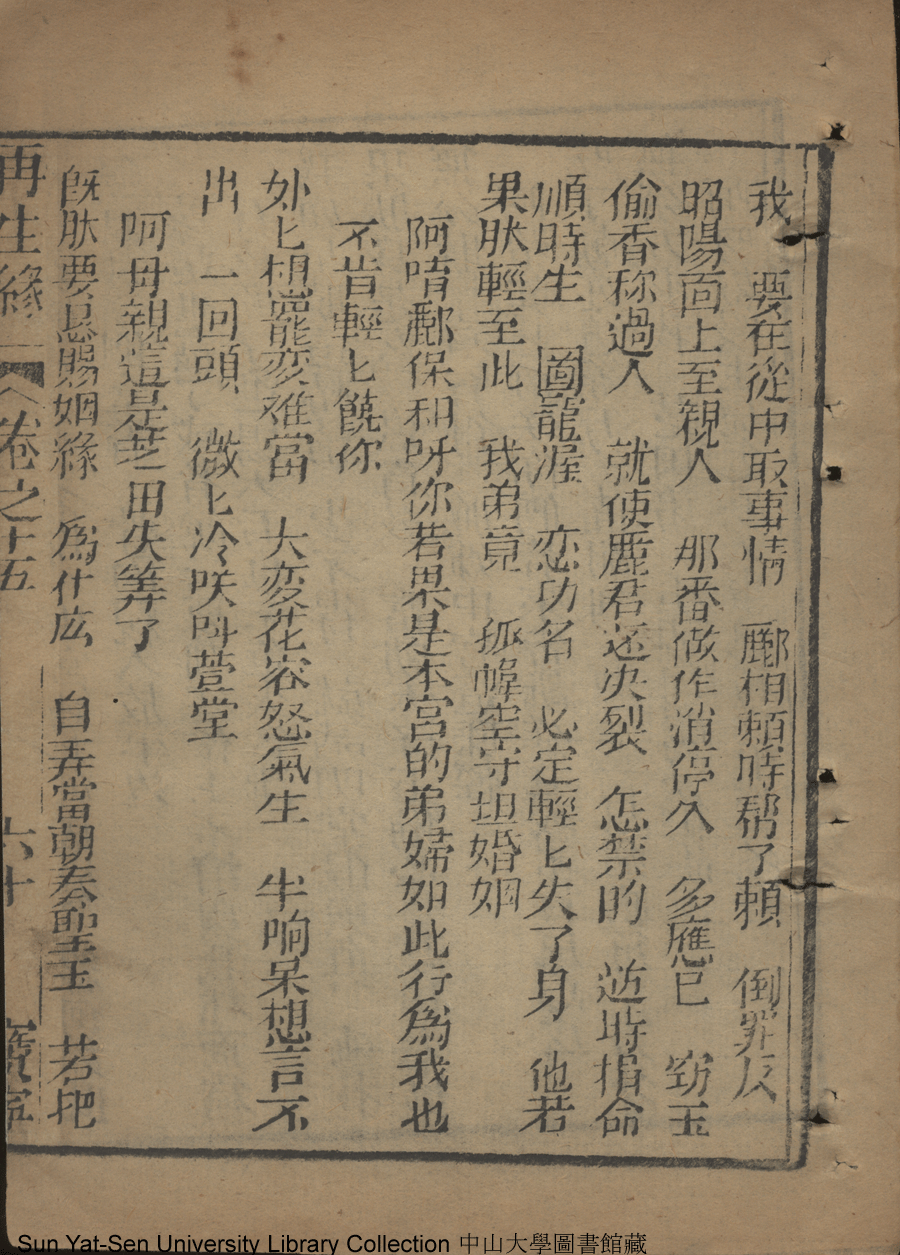 我　要在從中取事情　酈相賴時帮了賴　倒罪反
昭陽面上至親人　那番做作消停久　多應已　窃玉
偷香称過人　就使麗君还决裂　怎禁的　迯時捐命
順時生　圖寵渥　恋功名　必定輕匕失了身　他若
果肰輕至此　我弟竟　孤幃空守坦婚姻
阿唷酈保和呀你若果是本宮的弟婦如此行為我也
不肯輕匕饒你
娘匕想罷変难當　大変花容怒氣生　半晌呆想言不
出　一回頭　微匕冷咲呌萱堂
阿母親這是芝田失筭了
旣肰要恳賜姻緣　為什庅　自弄當朝奏節玉　若把
再生緣　卷之十五　六十　寳寧
Sun Yat-Sen University Library Collection 中山大學圖書館藏